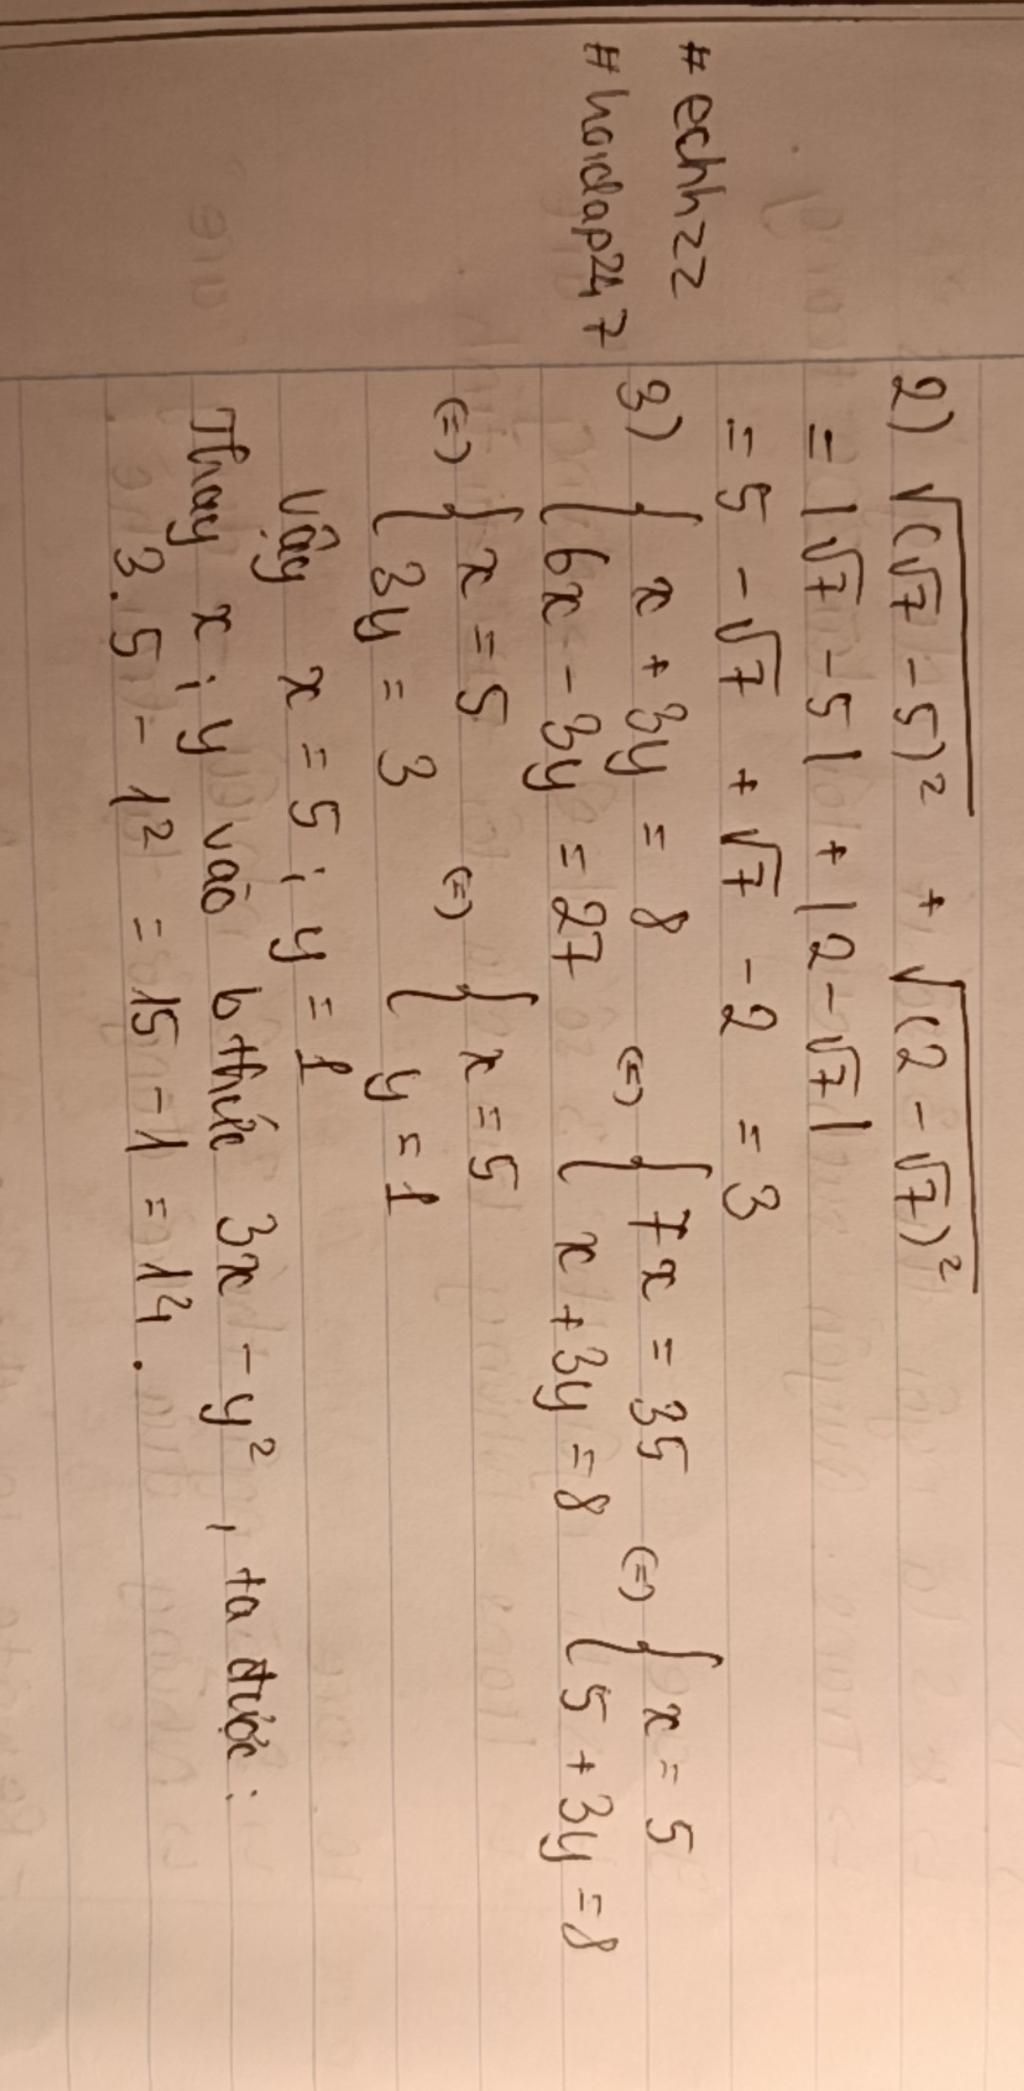 #echhzz
#hoidap247
2) √(√7 - 5)² + √(2 - √7)²
= |√7 - 5| + |2 - √7|
= 5 - √7 + √7 - 2 = 3
3) { x + 3y = 8 (=) { 7x = 35 (=) { x = 5
{ 6x - 3y = 27 { x + 3y = 8 { 5 + 3y = 8
(=) { x = 5 (=) { x = 5
{ 3y = 3 { y = 1
Vậy x = 5 ; y = 1
Thay x ; y vào b thức 3x - y², ta được :
3.5 - 1² = 15 - 1 = 14.